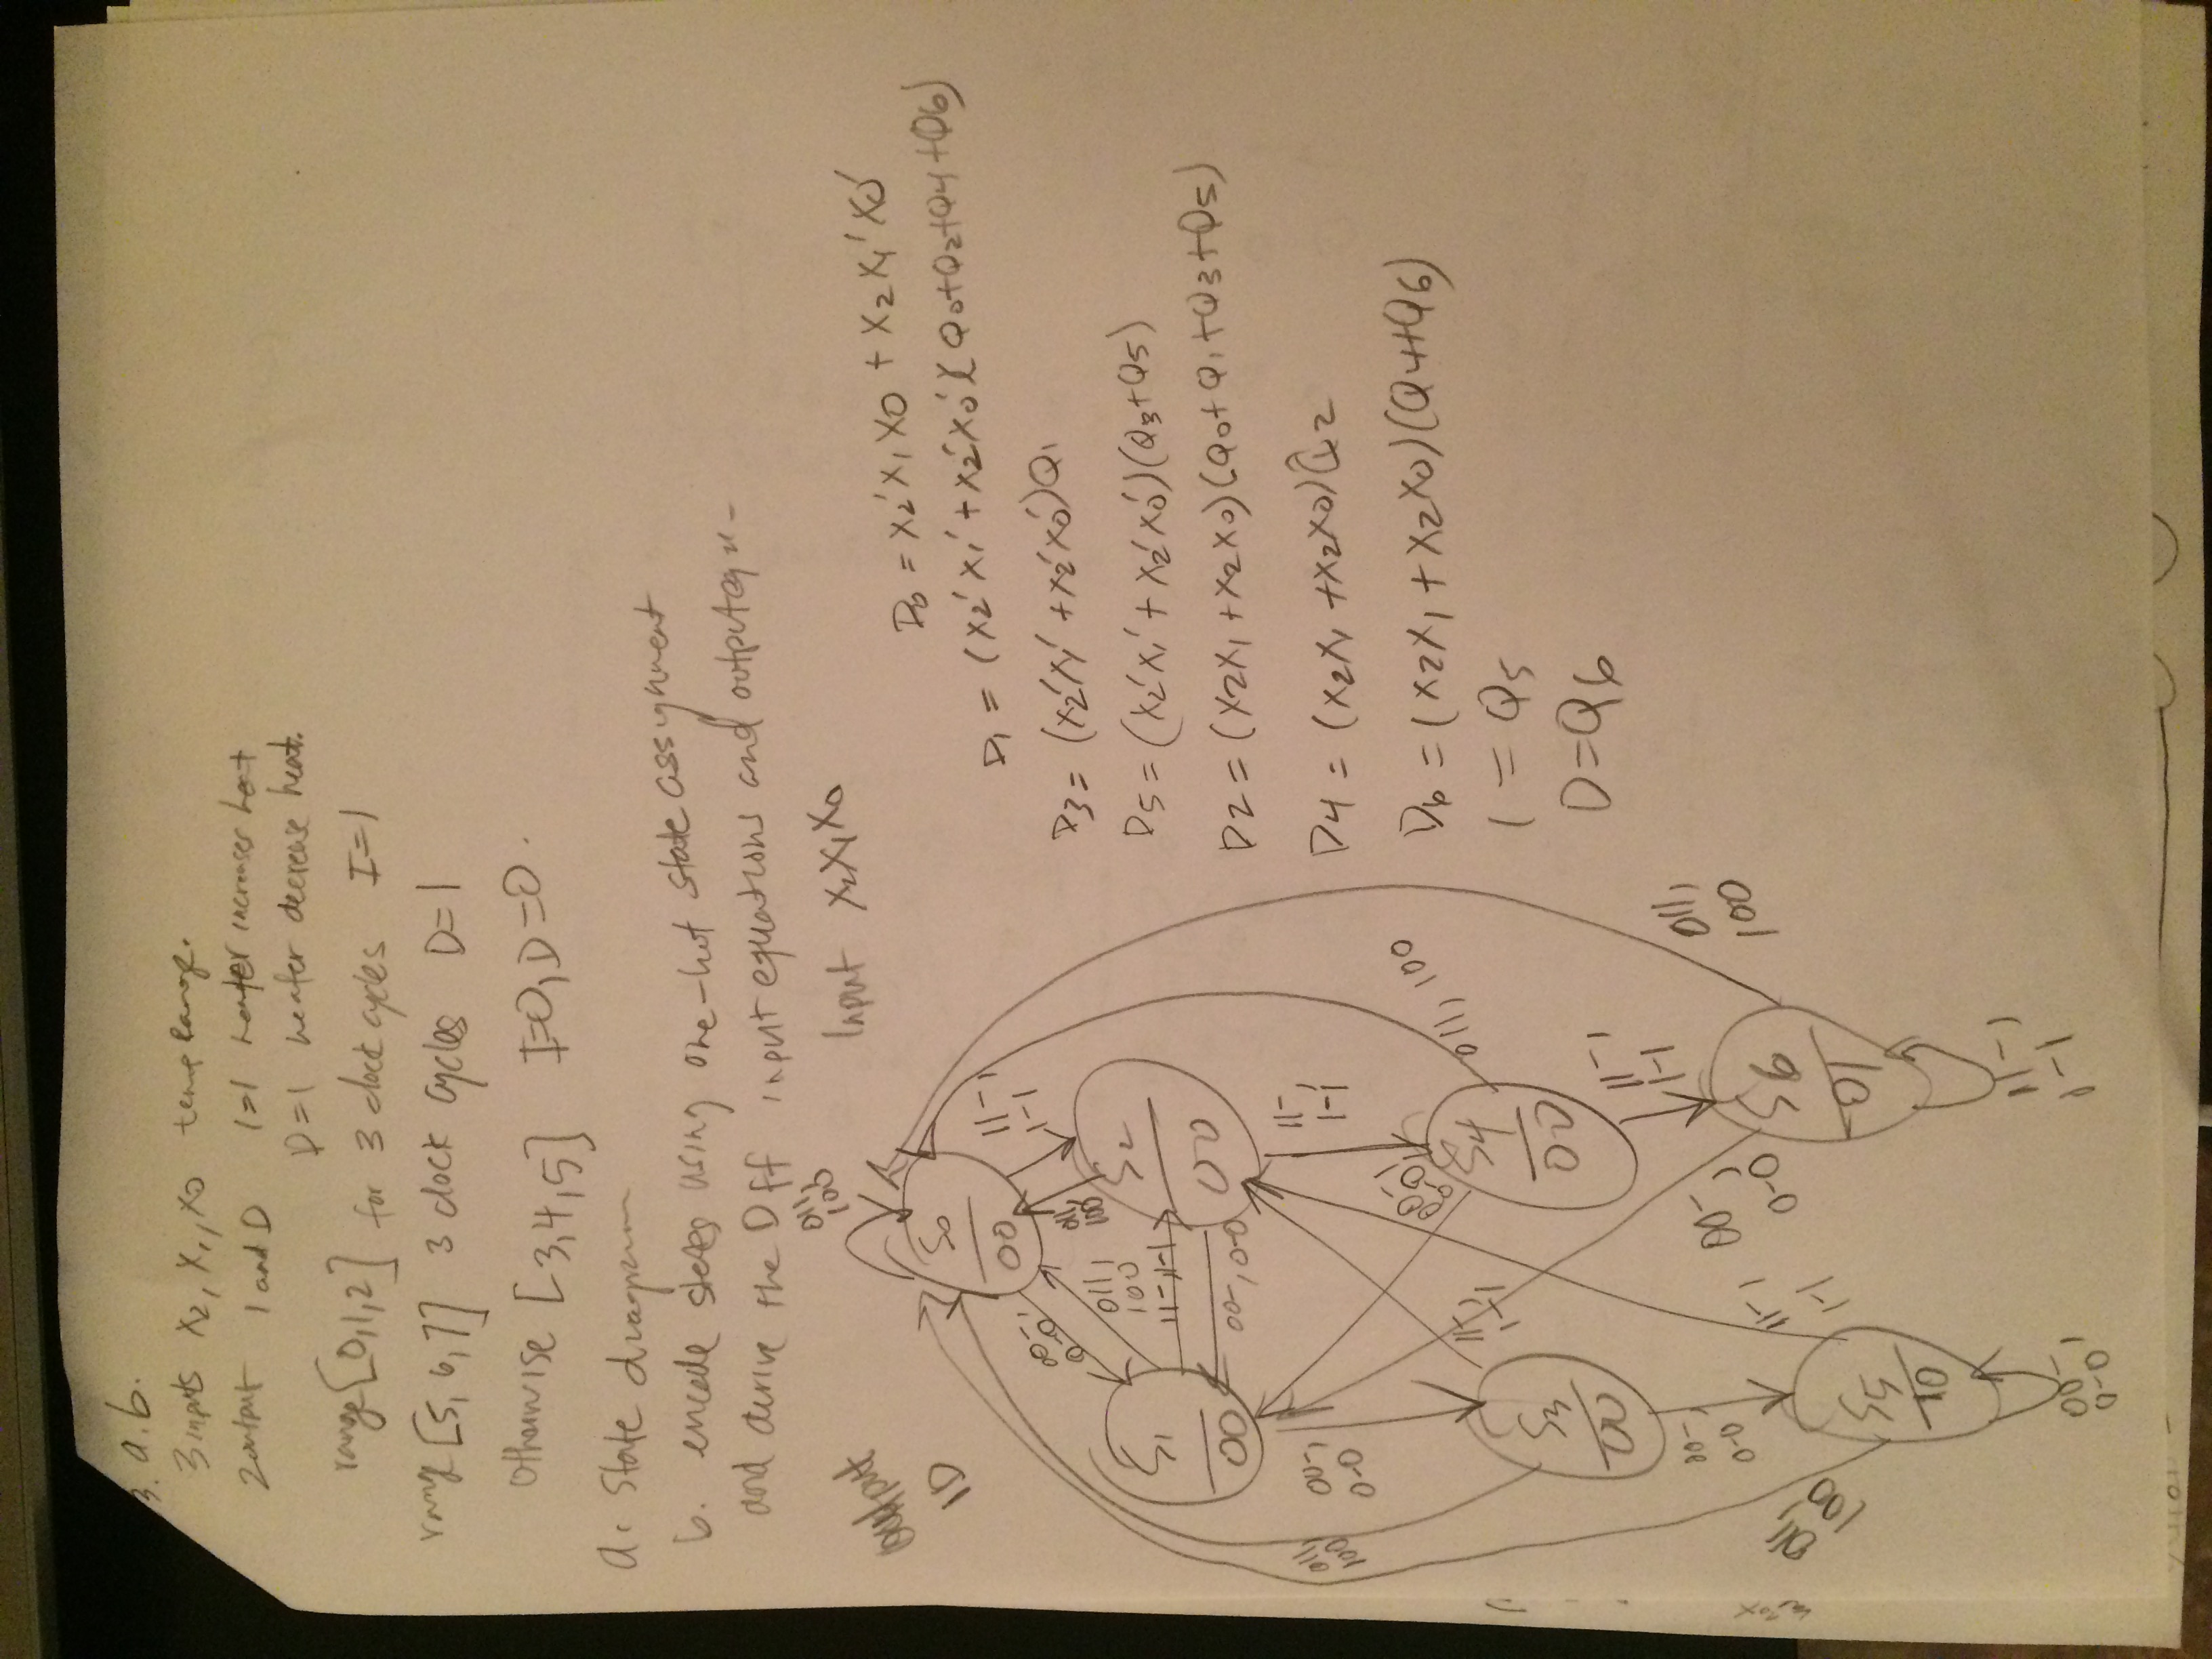 3. a.b.
3 inputs X2, X1, X0 temp Range.
2 output 1 and D 1=1 heater increases heat
D=1 heater decrease heat.
range [0,1,2] for 3 clock cycles I=1
range [5, 6, 7] 3 clock cycles D=1
otherwise [3,4,5] I=0, D=0.
a. State diagram
b. encode states using one-hot state assignment
and derive the Dff input equations and output equ-
Input X2X1X0
output
1D
011,
100
S0
00
00-,
0-0
011,
100
011,
100
11-,
1-1
S1
00
11-,1-1
00-,0-0
S2
00
00-,
0-0
011,
100
11-,
1-1
00-,
0-0
11-,
1-1
011, 100
S3
00
S4
00
00-,
0-0
11-,
1-1
00-,
0-0
011,
100
011,
100
11-,
1-1
S5
10
S6
01
00-,
0-0
11-,
1-1
D0 = X2'X1X0 + X2X1'X0'
D1 = (X2'X1' + X2'X0')(Q0+Q2+Q4+Q6)
D3 = (X2'X1' + X2'X0')Q1
D5 = (X2'X1' + X2'X0')(Q3+Q5)
D2 = (X2X1 + X2X0)(Q0+Q1+Q3+Q5)
D4 = (X2X1 + X2X0)Q2
D6 = (X2X1 + X2X0)(Q4+Q6)
1 = Q5
D=Q6